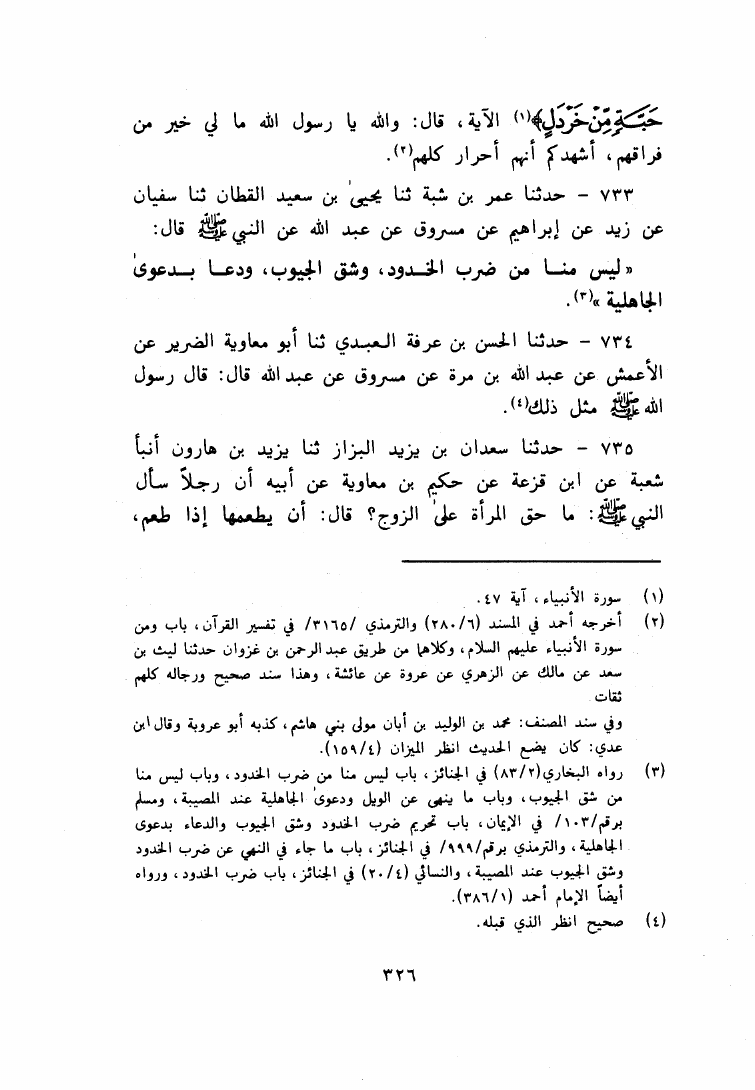 حَبَّةٍ مِّنْ خَرْدَلٍ﴾(١) الآية، قال: والله يا رسول الله ما لي خير من
فراقهم، أشهدكم أنهم أحرار كلهم(٢).
٧٣٣ - حدثنا عمر بن شبة ثنا يحيىٰ بن سعيد القطان ثنا سفيان
عن زيد عن إبراهيم عن مسروق عن عبد الله عن النبي ﷺ قال:
«ليس منا من ضرب الخدود، وشق الجيوب، ودعا بدعوىٰ
الجاهلية»(٣).
٧٣٤ - حدثنا الحسن بن عرفة العبدي ثنا أبو معاوية الضرير عن
الأعمش عن عبد الله بن مرة عن مسروق عن عبد الله قال: قال رسول
الله ﷺ مثل ذلك(٤).
٧٣٥ - حدثنا سعدان بن يزيد البزاز ثنا يزيد بن هارون أنبأ
شعبة عن ابن قزعة عن حكيم بن معاوية عن أبيه أن رجلاً سأل
النبي ﷺ: ما حق المرأة علىٰ الزوج؟ قال: أن يطعمها إذا طعم،
(١) سورة الأنبياء، آية ٤٧.
(٢) أخرجه أحمد في المسند (٢٨٠/٦) والترمذي /٣١٦٥/ في تفسير القرآن، باب ومن
سورة الأنبياء عليهم السلام، وكلاهما من طريق عبد الرحمن بن غزوان حدثنا ليث بن
سعد عن مالك عن الزهري عن عروة عن عائشة، وهذا سند صحيح ورجاله كلهم
ثقات
وفي سند المصنف: محمد بن الوليد بن أبان مولى بني هاشم، كذبه أبو عروبة وقال ابن
عدي: كان يضع الحديث انظر الميزان (١٥٩/٤).
(٣) رواه البخاري (٨٣/٢) في الجنائز، باب ليس منا من ضرب الخدود، وباب ليس منا
من شق الجيوب، وباب ما ينهى عن الويل ودعوىٰ الجاهلية عند المصيبة، ومسلم
برقم /١٠٣/ في الإيمان، باب تحريم ضرب الخدود وشق الجيوب والدعاء بدعوى
الجاهلية، والترمذي برقم /٩٩٩/ في الجنائز، باب ما جاء في النهي عن ضرب الخدود
وشق الجيوب عند المصيبة، والنسائي (٢٠/٤) في الجنائز، باب ضرب الخدود، ورواه
أيضاً الإمام أحمد (٣٨٦/١).
(٤) صحيح انظر الذي قبله.
٣٢٦